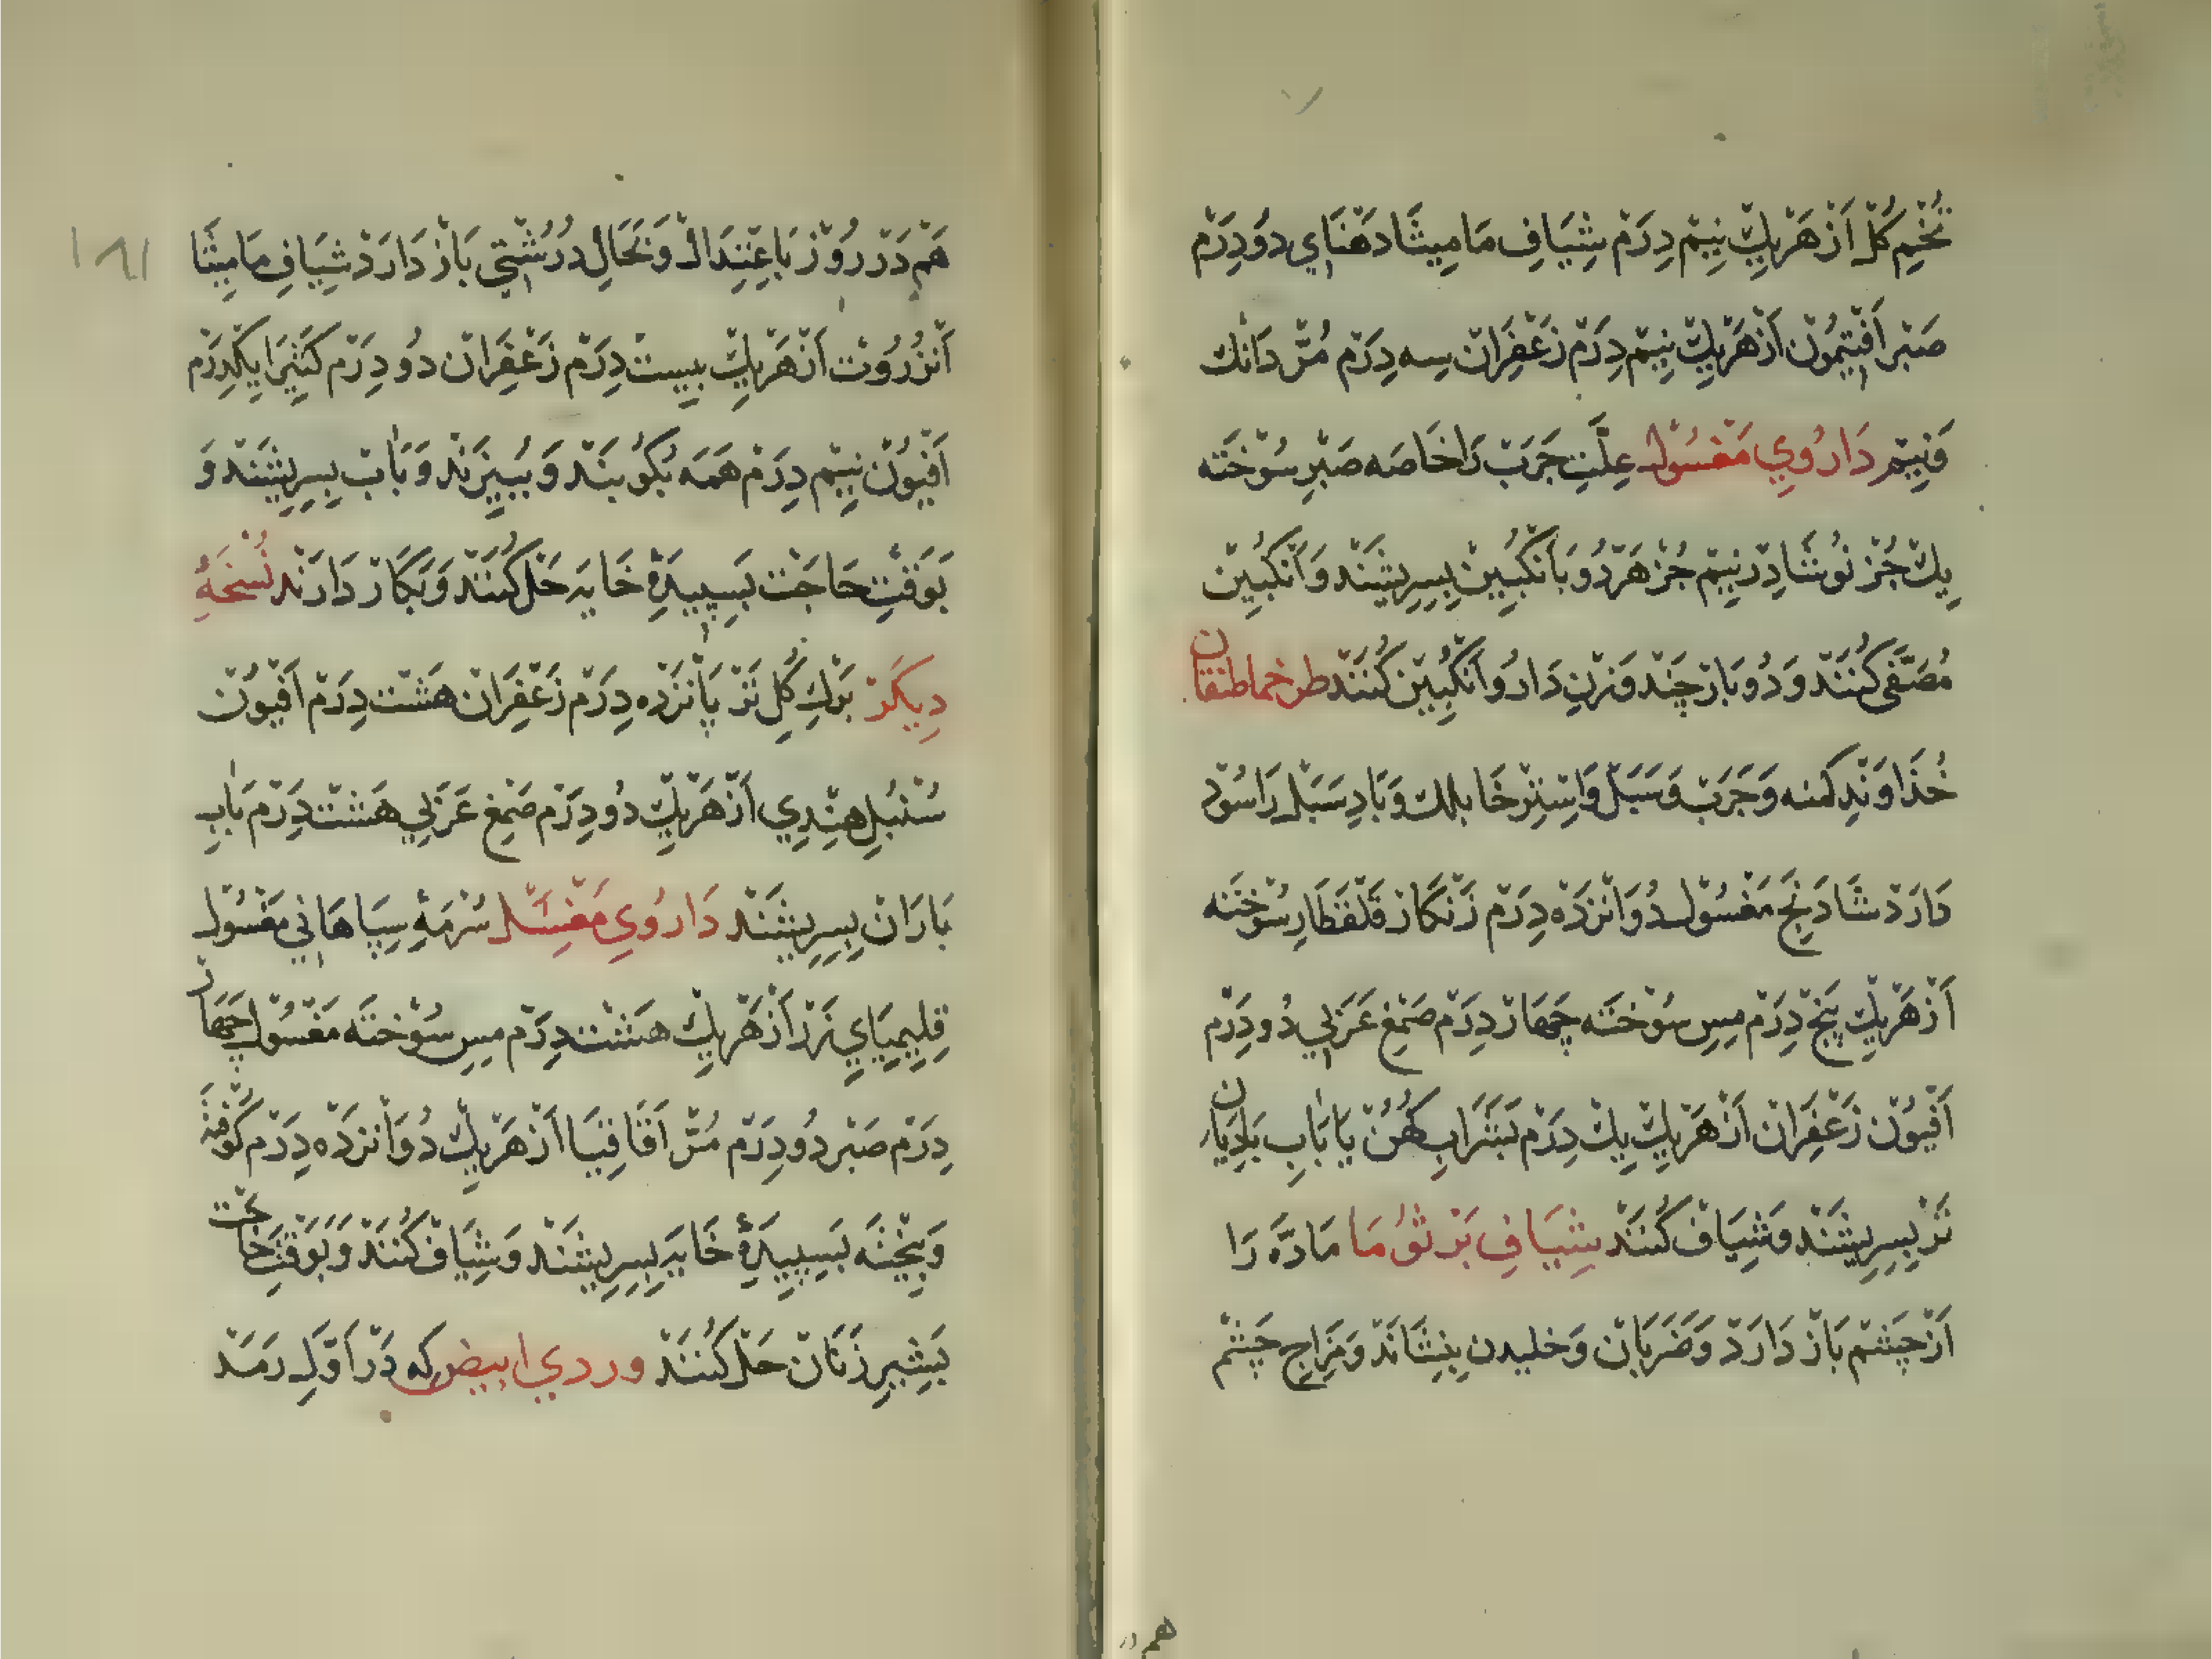 تُخْمِ كُلْ اَزْ هَرْيِكْ نِيْم دِرَمْ شِيَافِ مَامِيثَا دَهْنَايِ دُو دِرَمْ
صَبْر اَفْتِيمُونْ اَزْ هَرْيِكْ نِيْم دِرَمْ زَعْفِرَانْ سِه دِرَمْ مُرّ دَانْك
وَنِيْم دَارُويِ مَغْسُولْ عِلَّتِ جَرَبْ رَا خَاصَه صَبْرِ سُوْخْتَه
يِكْ جُزْ نُوشَادِرْ نِيْم جُزْ هَرْدُو بَاَنْكَبِيْن بِسِرِيشَنْد وَاَنْكَبِيْن
مُصَفَّى كُنَنْد وَدُو بَارْ چَنْد وَزْنِ دَارُو اَنْكَبِيْن كُنَنْد طرخماطنقان
خُذَاوَنْدِ كمنه وَجَرَبْ وَسَبَلْ وَاِسْتِرْخَا بلك وَبَادِ سَبَلْ رَا سُوْد
دَارَدْ شَادَنَجِ مَغْسُولْ دُوَانْزْدَه دِرَمْ زَنْكَارْ قَلْقَطَارِ سُوْخْتَه
اَزْ هَرْيِكْ پَنْج دِرَمْ مِسِ سُوْخْتَه چَهَارْ دِرَمْ صَمْغِ عَرَبِي دُو دِرَمْ
اَفْيُوْن زَعْفِرَانْ اَزْ هَرْيِكْ يِكْ دِرَمْ بَشَرَابِ كُهُنْ يَا بَابِ بَادِيَان
تَرْ بِسِرِيشَنْد وَشِيَافْ كُنَنْد شِيَافِ بَرْثُوْمَا مَادَّه رَا
اَزْ چَشْم بَازْ دَارَدْ وَضَرَبَانْ وَخليدن بِنِشَانَدْ وَمِزَاجِ چَشْم
هم در
هَمْ دَرْ رُوْزْ بَاعْتِدَالْ وَبَحَالِ دُرُشْتِي بَازْ دَارَدْ شِيَافِ مَامِيثَا
اَنْزُرُوْت اَزْ هَرْيِكْ بِيسْت دِرَمْ زَعْفِرَانْ دُو دِرَمْ كَثِيْرَا يِكْدِرَمْ
اَفْيُوْن نِيْم دِرَمْ هَمَه بُكُوبَنْد وَبِبِيزَنْد وَبَابْ بِسِرِيشَنْد وَ
بَوَقْتِ حَاجَتْ بَسِپِيدَهٔ خَايَه حَلْ كُنَنْد وَبَكَارْ دَارَنْد نُسْخَهٔ
دِيكَرْ بَرْكِ كُلِ تَرْ پَانْزْدَه دِرَمْ زَعْفِرَانْ هَشْت دِرَمْ اَفْيُوْنْ
سُنْبُلِ هِنْدِي اَزْ هَرْيِكْ دُو دِرَمْ صَمْغِ عَرَبِي هَشْت دِرَمْ بَابِ
بَارَانْ بِسِرِيشَنْد دَارُويِ مَغْسَلْ سُرْمَهٔ سِپَاهَانِي مَغْسُولْ
قِلِيمِيَايِ زَرْ اَزْ هَرْيِكْ هَشْت دِرَمْ مِسِ سُوْخْتَه مَغْسُولْ چَهَارْ
دِرَمْ صَبْر دُو دِرَمْ مُرّ اَقَاقِيَا اَزْ هَرْيِكْ دُوَانْزْدَه دِرَمْ كُوفْتَه
وَبِيخْتَه بَسِپِيدَهٔ خَايَه بِسِرِيشَنْد وَشِيَافْ كُنَنْد وَبَوَقْتِ حَاجَتْ
بَشِيرِ زَنَانْ حَلْ كُنَنْد وردي ابيض كِه دَرْ اَوَّلِ رَمَدْ
١٨١